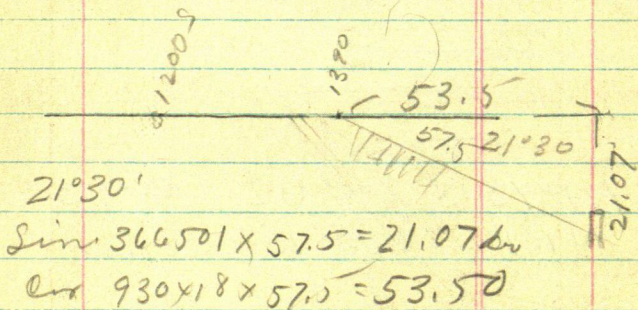 1200
1390
53.5
57.5 21°30
21.07'
21°30'
Sin 366501 X 57.5 = 21.07
Cos 930418 X 57.5 = 53.50